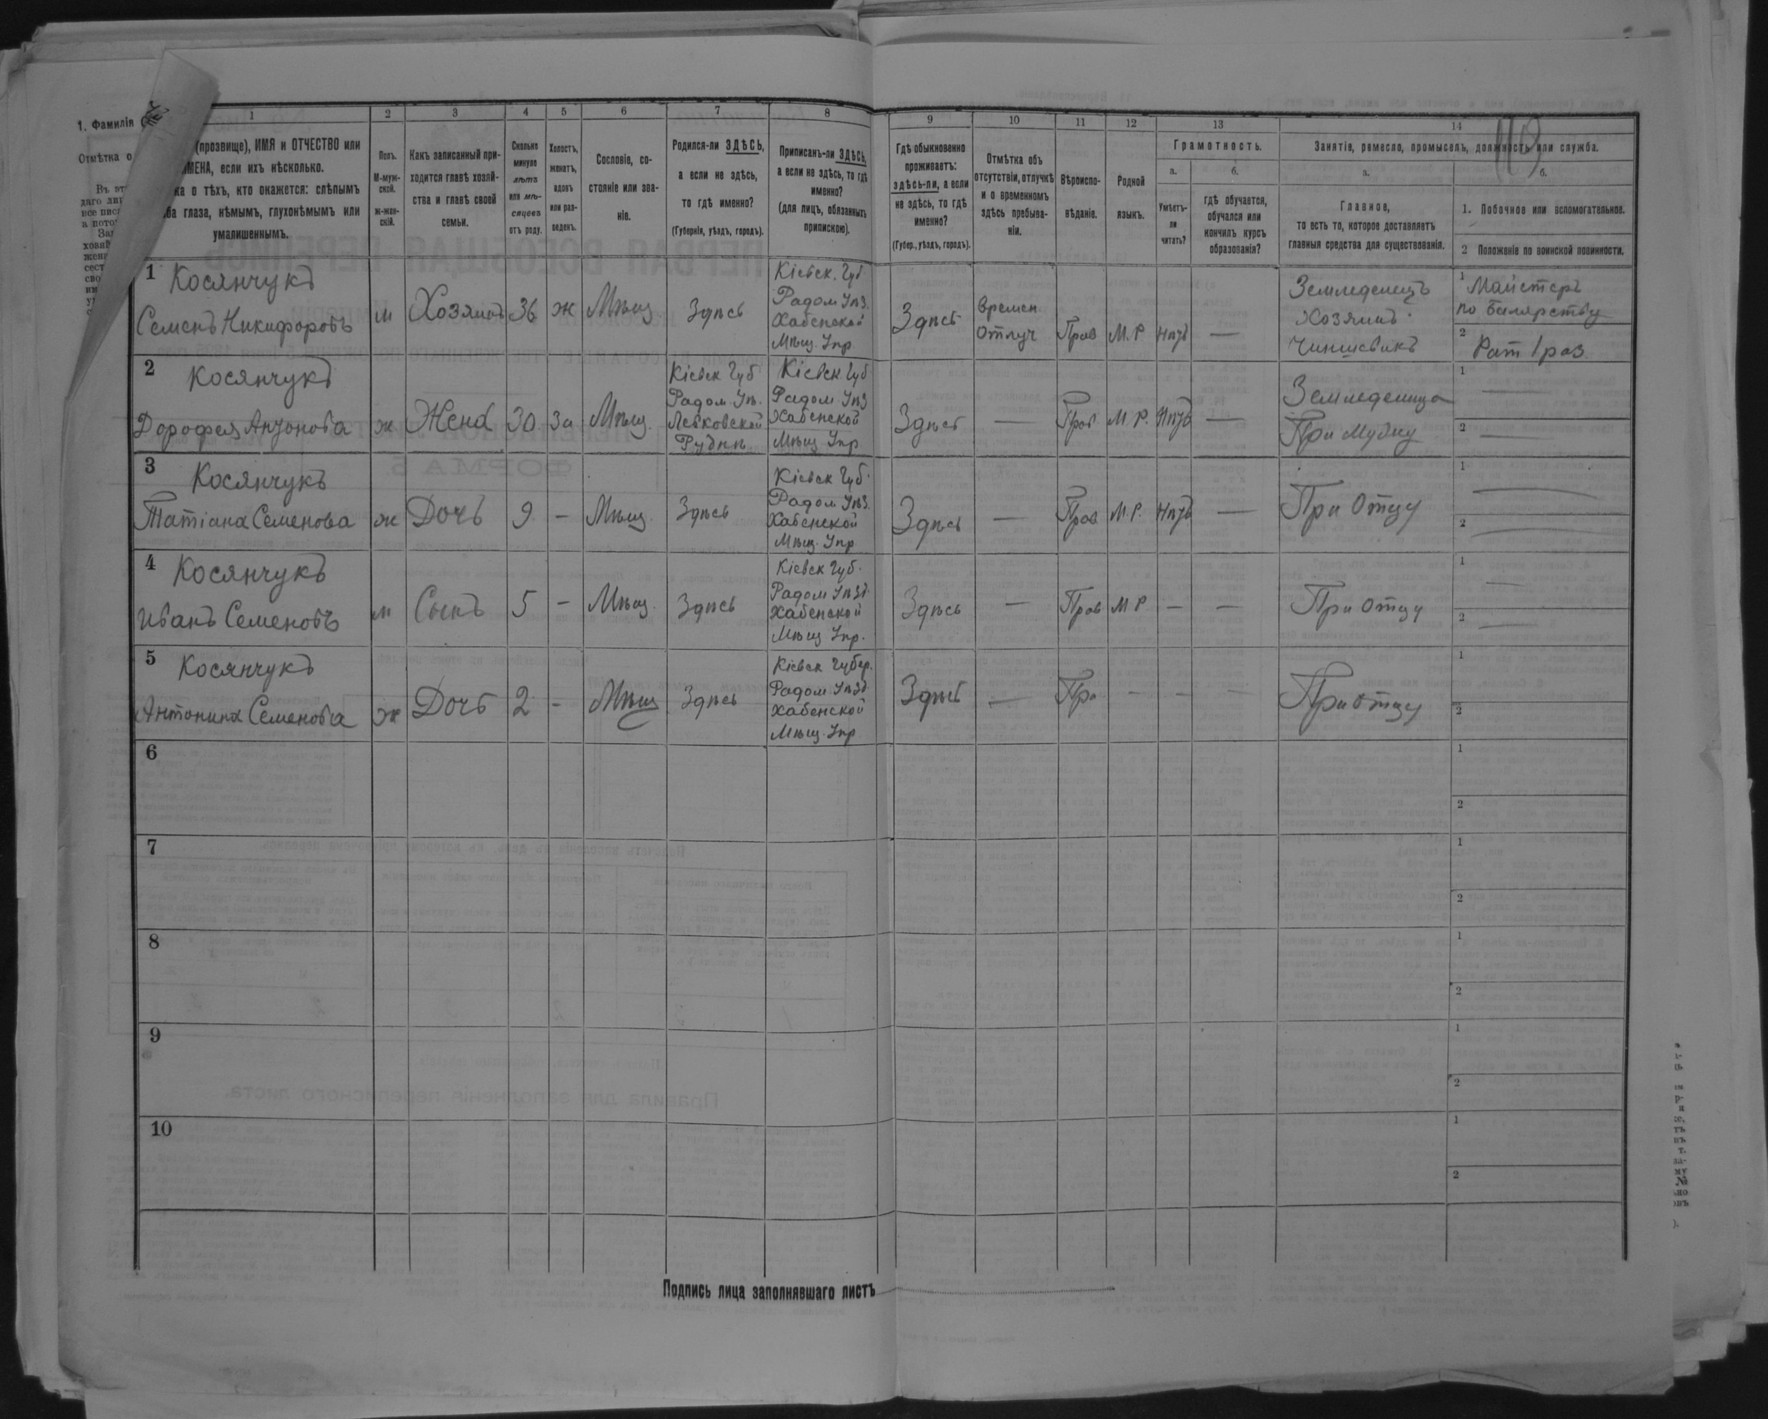 1. Фамилія
Отмѣтка о
1
(прозвище), ИМЯ и ОТЧЕСТВО или
ИМЕНА, если ихъ нѣсколько.
о тѣхъ, кто окажется: слѣпымъ
глаза, нѣмымъ, глухонѣмымъ или
умалишеннымъ.
2
Полъ.
М-муж-
ской.
Ж-жен-
скій.
3
Какъ записанный при-
ходится главѣ хозяй-
ства и главѣ своей
семьи.
4
Сколько
минуло
лѣтъ
или мѣ-
сяцевъ
отъ роду.
5
Холостъ,
женатъ,
вдовъ
или раз-
веденъ.
6
Сословіе, со-
стояніе или зва-
ніе.
7
Родился-ли ЗДѢСЬ,
а если не здѣсь,
то гдѣ именно?
(Губернія, уѣздъ, городъ).
8
Приписанъ-ли ЗДѢСЬ,
а если не здѣсь, то гдѣ
именно?
(для лицъ, обязанныхъ
припискою).
9
Гдѣ обыкновенно
проживаетъ:
здѣсь-ли, а если
не здѣсь, то гдѣ
именно?
(Губер., уѣздъ, городъ).
10
Отмѣтка объ
отсутствіи, отлучкѣ
и о временномъ
здѣсь пребыва-
ніи.
11
Вѣроиспо-
вѣданіе.
12
Родной
языкъ.
13
Грамотность.
а.
Умѣетъ-
ли
читать?
б.
гдѣ обучается,
обучался или
кончилъ курсъ
образованія?
14
Занятіе, ремесло, промыселъ, должность или служба.
а.
Главное,
то есть то, которое доставляетъ
главныя средства для существованія.
б.
1. Побочное или вспомогательное.
2 Положеніе по воинской повинности.
1 Косянчукъ
Семенъ Никифоровъ
м
Хозяинъ
36
ж
Мѣщ
Здѣсь
Кіевск. Губ
Радом Уѣз.
Хабенской
Мѣщ. Упр
Здѣсь
Времен
Отлуч
Прав
М. Р
Нѣтъ
—
Земледелецъ
Хозяинъ
Чиншевикъ
1 Майстеръ
по Бондарству
2 Рат 1 раз
2 Косянчукъ
Дорофея Антонова
ж
Жена
30
За
Мѣщ.
Кіевск Губ
Радом. Уѣ.
Левковской
Рудни
Кіевск Губ
Радом Уѣз
Хабенской
Мѣщ Упр
Здѣсь
—
Прав
М. Р.
Нѣтъ
Земледелица
При Мужу
1 —
2 —
3 Косянчукъ
Татіана Семенова
ж
Дочь
9
–
Мѣщ.
Здѣсь
Кіевск Губ
Радом Уѣз.
Хабенской
Мѣщ. Упр
Здѣсь
—
Прав
М. Р.
Нѣтъ
—
При Отцу
1 —
2 —
4 Косянчукъ
Иванъ Семеновъ
м
Сынъ
5
–
Мѣщ.
Здѣсь
Кіевск Губ.
Радом Уѣзд.
Хабенской
Мѣщ Упр.
Здѣсь
—
Прав
М Р
–
–
При отцу
1 —
2 —
5 Косянчукъ
Антонина Семенова
ж
Дочь
2
–
Мѣщ
Здѣсь
Кіевск Губер.
Радом Уѣзд
Хабенской
Мѣщ. Упр
Здѣсь
—
Пра
–
–
–
При отцу
1
2
6
1
2
7
1
2
8
1
2
9
1
2
10
1
2
Подпись лица заполнявшаго листъ